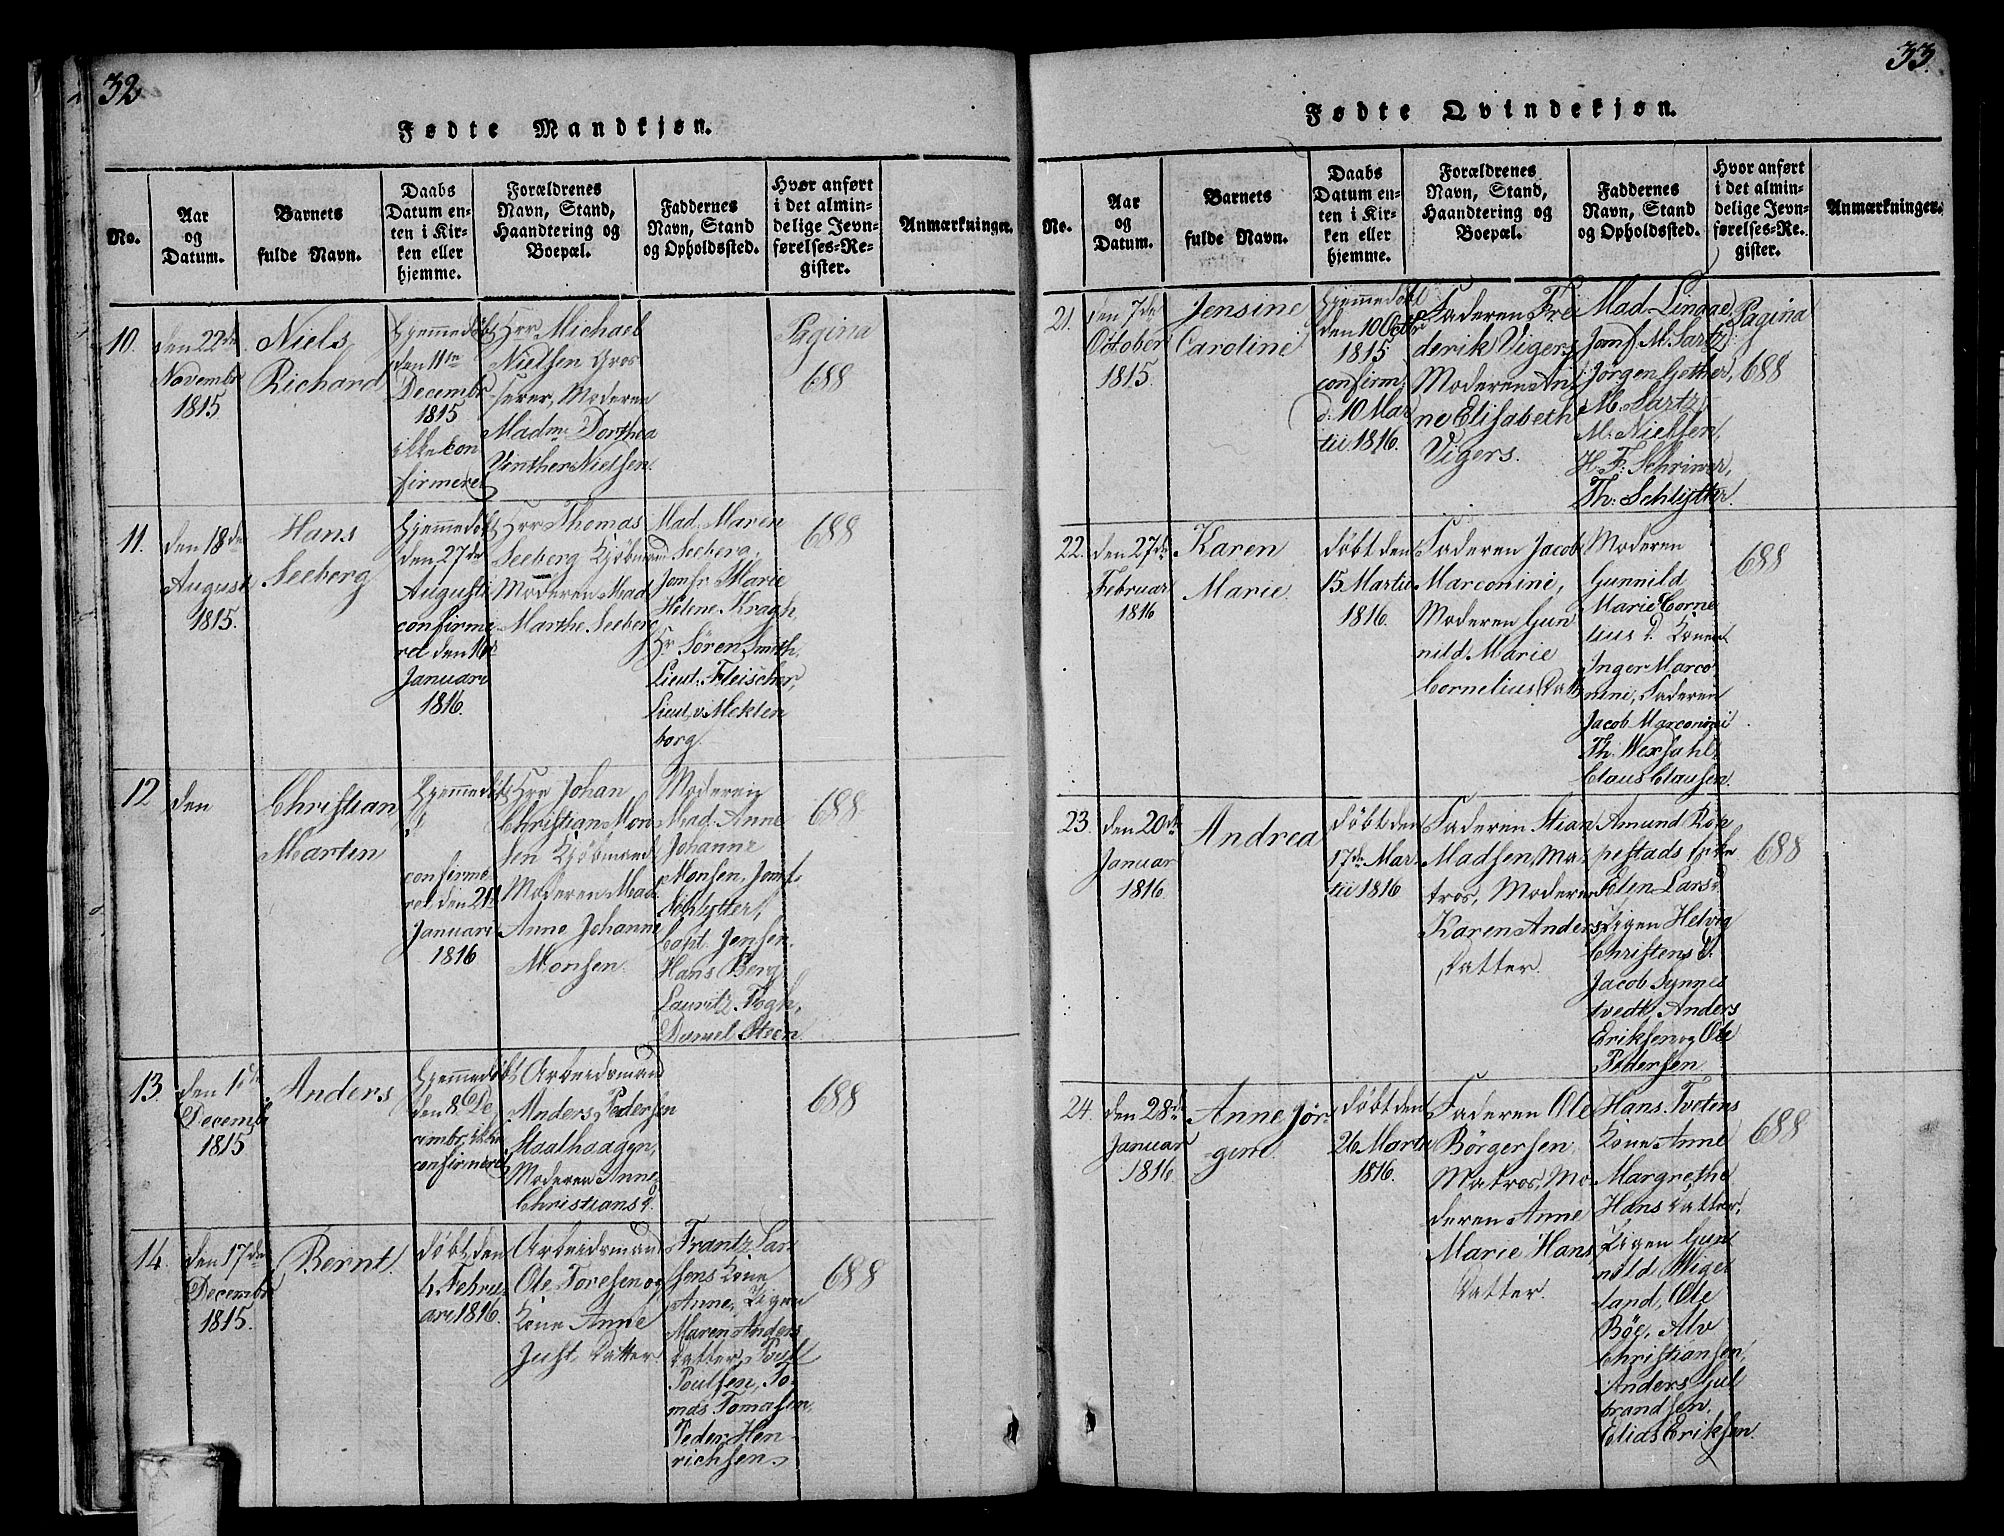 32
Fødte Mandkjøn.
No.
Aar
og
Datum.
Barnets
fulde Navn.
Daabs
Datum en-
ten i Kir-
ken eller
hjemme.
Forældrenes
Navn, Stand,
Haandtering og
Boepæl.
Faddernes
Navn, Stand
og Opholdssted.
Hvor anført
i det almin-
delige Jevn-
førelses-Re-
gister.
Anmærkninger.
10.
den 22de
Novembr
1815
Niels
Richard
Hjemmedøbt
den 11te
Decembr
1815
ikke con
firmeret
Hrr Michael
Nielsen Gros
serer, Moderen
Madme Dorthea
Vinther Nielsen
Pagina
688
11.
den 18de
August
1815.
Hans
Seeberg
Hjemmedøbt
den 27de
Augusti
confirme
ret den 16de
Januari
1816.
Hrr Thomas
Seeberg Kjøbmand
Moderen Mad
Marthe Seeberg
Mad. Maren
Seeberg,
Jomfr Marie
Helene Kragh,
Hr Søren Smith,
Lieut. Fleischer,
Lieut. v. Meklen
borg.
688
12
den
Christian
Marten
Hjemmedøbt
"
confirme
ret den 21de
Januari
1816
Hrr Johan
Christian Mon
sen Kjøbmand
Moderen Mad.
Anne Johanne
Monsen.
Moderen
Mad. Anne
Johanne
Monsen, Jomf.
Schlytter,
Capt. Jensen,
Hans Berg
Lauritz Fogh,
Daniel Steen
688
13.
den 1de
Decembr
1815
Anders
Hjemmedøbt
den 8. De
cembr, ikke
confirmeret
Arbeidsmand
Anders Pedersen
Staalhaagen,
Moderen Anne
Christians d.
688
14.
den 17de
Decembr
1815.
Bernt.
døbt den
4. Febru
ari 1816.
Arbeidsmand
Ole Toresen og
Kone Anne
Just, Datter.
Frantz Lar
sens Kone
Anne, Pigen
Maren Anders
Datter, Poul
Poulsen, To
mas Tomasen,
Peder Hen-
richsen.
688
33.
Fødte Qvindekjøn.
No.
Aar
og
Datum.
Barnets
fulde Navn.
Daabs
Datum en-
ten i Kir-
ken eller
hjemme.
Forældrenes
Navn, Stand,
Haandtering og
Boepæl.
Faddernes
Navn, Stand
og Opholdssted.
Hvor anført
i det almin-
delige Jevn-
førelses-Re-
gister.
Anmærkninger.
21.
den 7de
October
1815.
Jensine
Caroline
Hjemmedøbt
den 10 Octbr
1815
confirm.
d. 10 Mar
tii 1816.
Faderen Fre
derik Vigers
Moderen An
ne Elisabeth
Vigers.
Mad. Lingae,
Jomf M. Sartz
Jørgen Gether,
M. Sartz
M. Nielsen,
H. F. Schriwer,
Th: Schlytter.
Pagina
688
22.
den 27de
Februar
1816
Karen
Marie
døbt den
15 Martii
1816.
Faderen Jacob
Marconini,
Moderen Gun
nild Marie
Cornelius Datt
Moderen
Gunnild
Marie Corne
lius d. Konen
Inger Marco
nini, Faderen
Jacob Marconini
Th. Wexsahl
Claus Clausen
688
23.
den 20de
Januar
1816.
Andrea
døbt den
17de Mar
tii 1816
Faderen Stian
Madsen, Ma
tros, Moderen
Karen Anders
Datter.
Amund Ron
pestads
Lars d.
Pigen Helvig
Christens d.
Jacob Synnes
tvedt, Anders
Eriksen og Ole
Pedersen
688
24.
den 28de
Januar
1816
Anne Jør
gine
døbt den
26 Martii
1816.
Faderen Ole
Børgersen,
Matros, Mo
deren Anne
Marie Hans
Datter.
Hans Tvetens
Kone Anne
Margrethe
Hans Datter,
Pigen Gun
nild Wige
land, Ole
Bøe, Alv
Christiansen,
Anders Gul
brandsen,
Elias Eriksen.
688